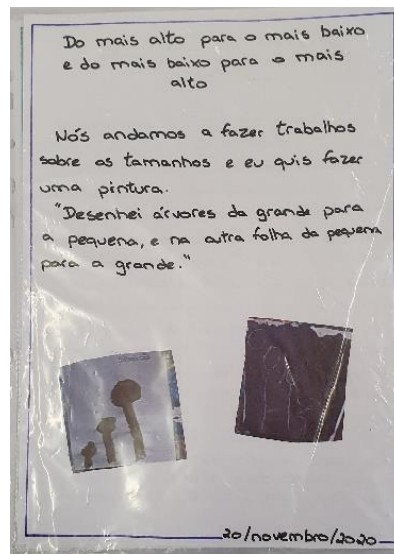 Do mais alto para o mais baixo
e do mais baixo para o mais
alto
Nós andamos a fazer trabalhos
sobre os tamanhos e eu quis fazer
uma pintura.
"Desenhei árvores da grande para
a pequena, e na outra folha da pequena
para a grande."
20/novembro/2020